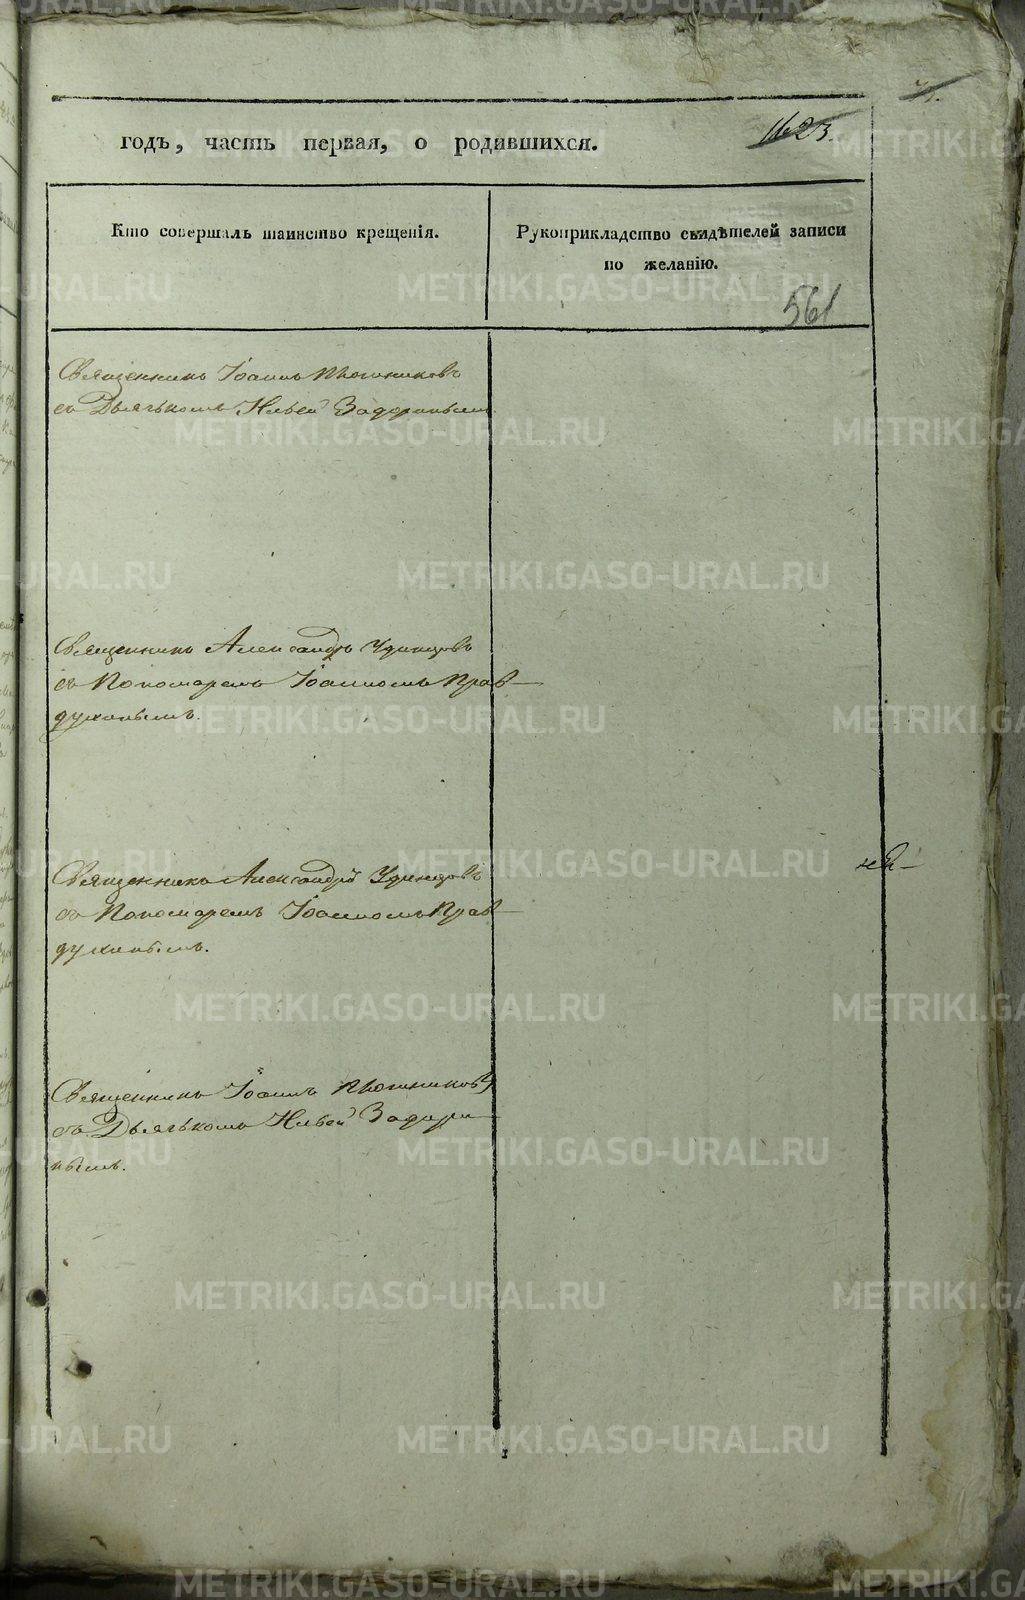 71.
1623.
годъ, часть первая, о родившихся.
Кто совершалъ таинство крещенія.
Рукоприкладство свидѣтелей записи
по желанію.
561
Священникъ Іоаннъ Плотниковъ
съ Дьячькомъ Ильей Задоринымъ
Священникъ Александръ Удинцовъ
съ Пономаремъ Іоанномъ Прав-
духинымъ.
Священникъ Александръ Удинцовъ
съ Пономаремъ Іоанномъ Прав-
духинымъ.
Священникъ Іоаннъ Плотниковъ
съ Дьячькомъ Ильей Задори-
нымъ.
METRIKI.GASO-URAL.RU